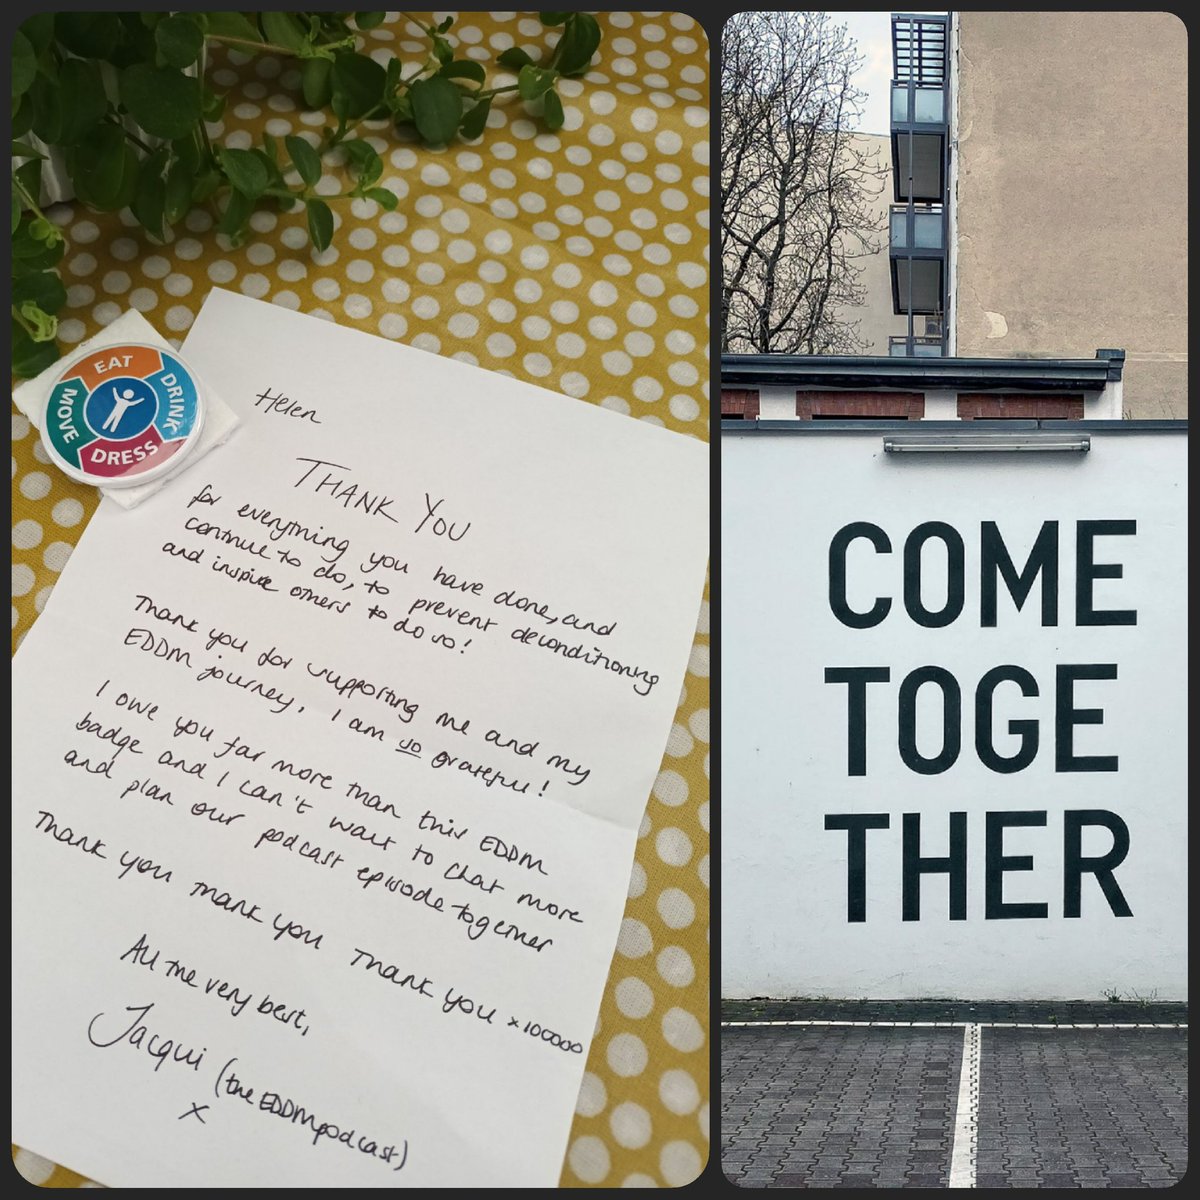 EAT
DRINK
DRESS
MOVE
Helen
THANK YOU
for everything you have done, and
continue to do, to prevent deconditioning
and inspire others to do so!
Thank you for supporting me and my
EDDM journey, I am so grateful!
I owe you far more than this EDDM
badge and I can't wait to chat more
and plan our podcast episode together
Thank you thank you Thank you x100000
All the very best,
Jacqui (the EDDMpodcast)
X
COME
TOGE
THER